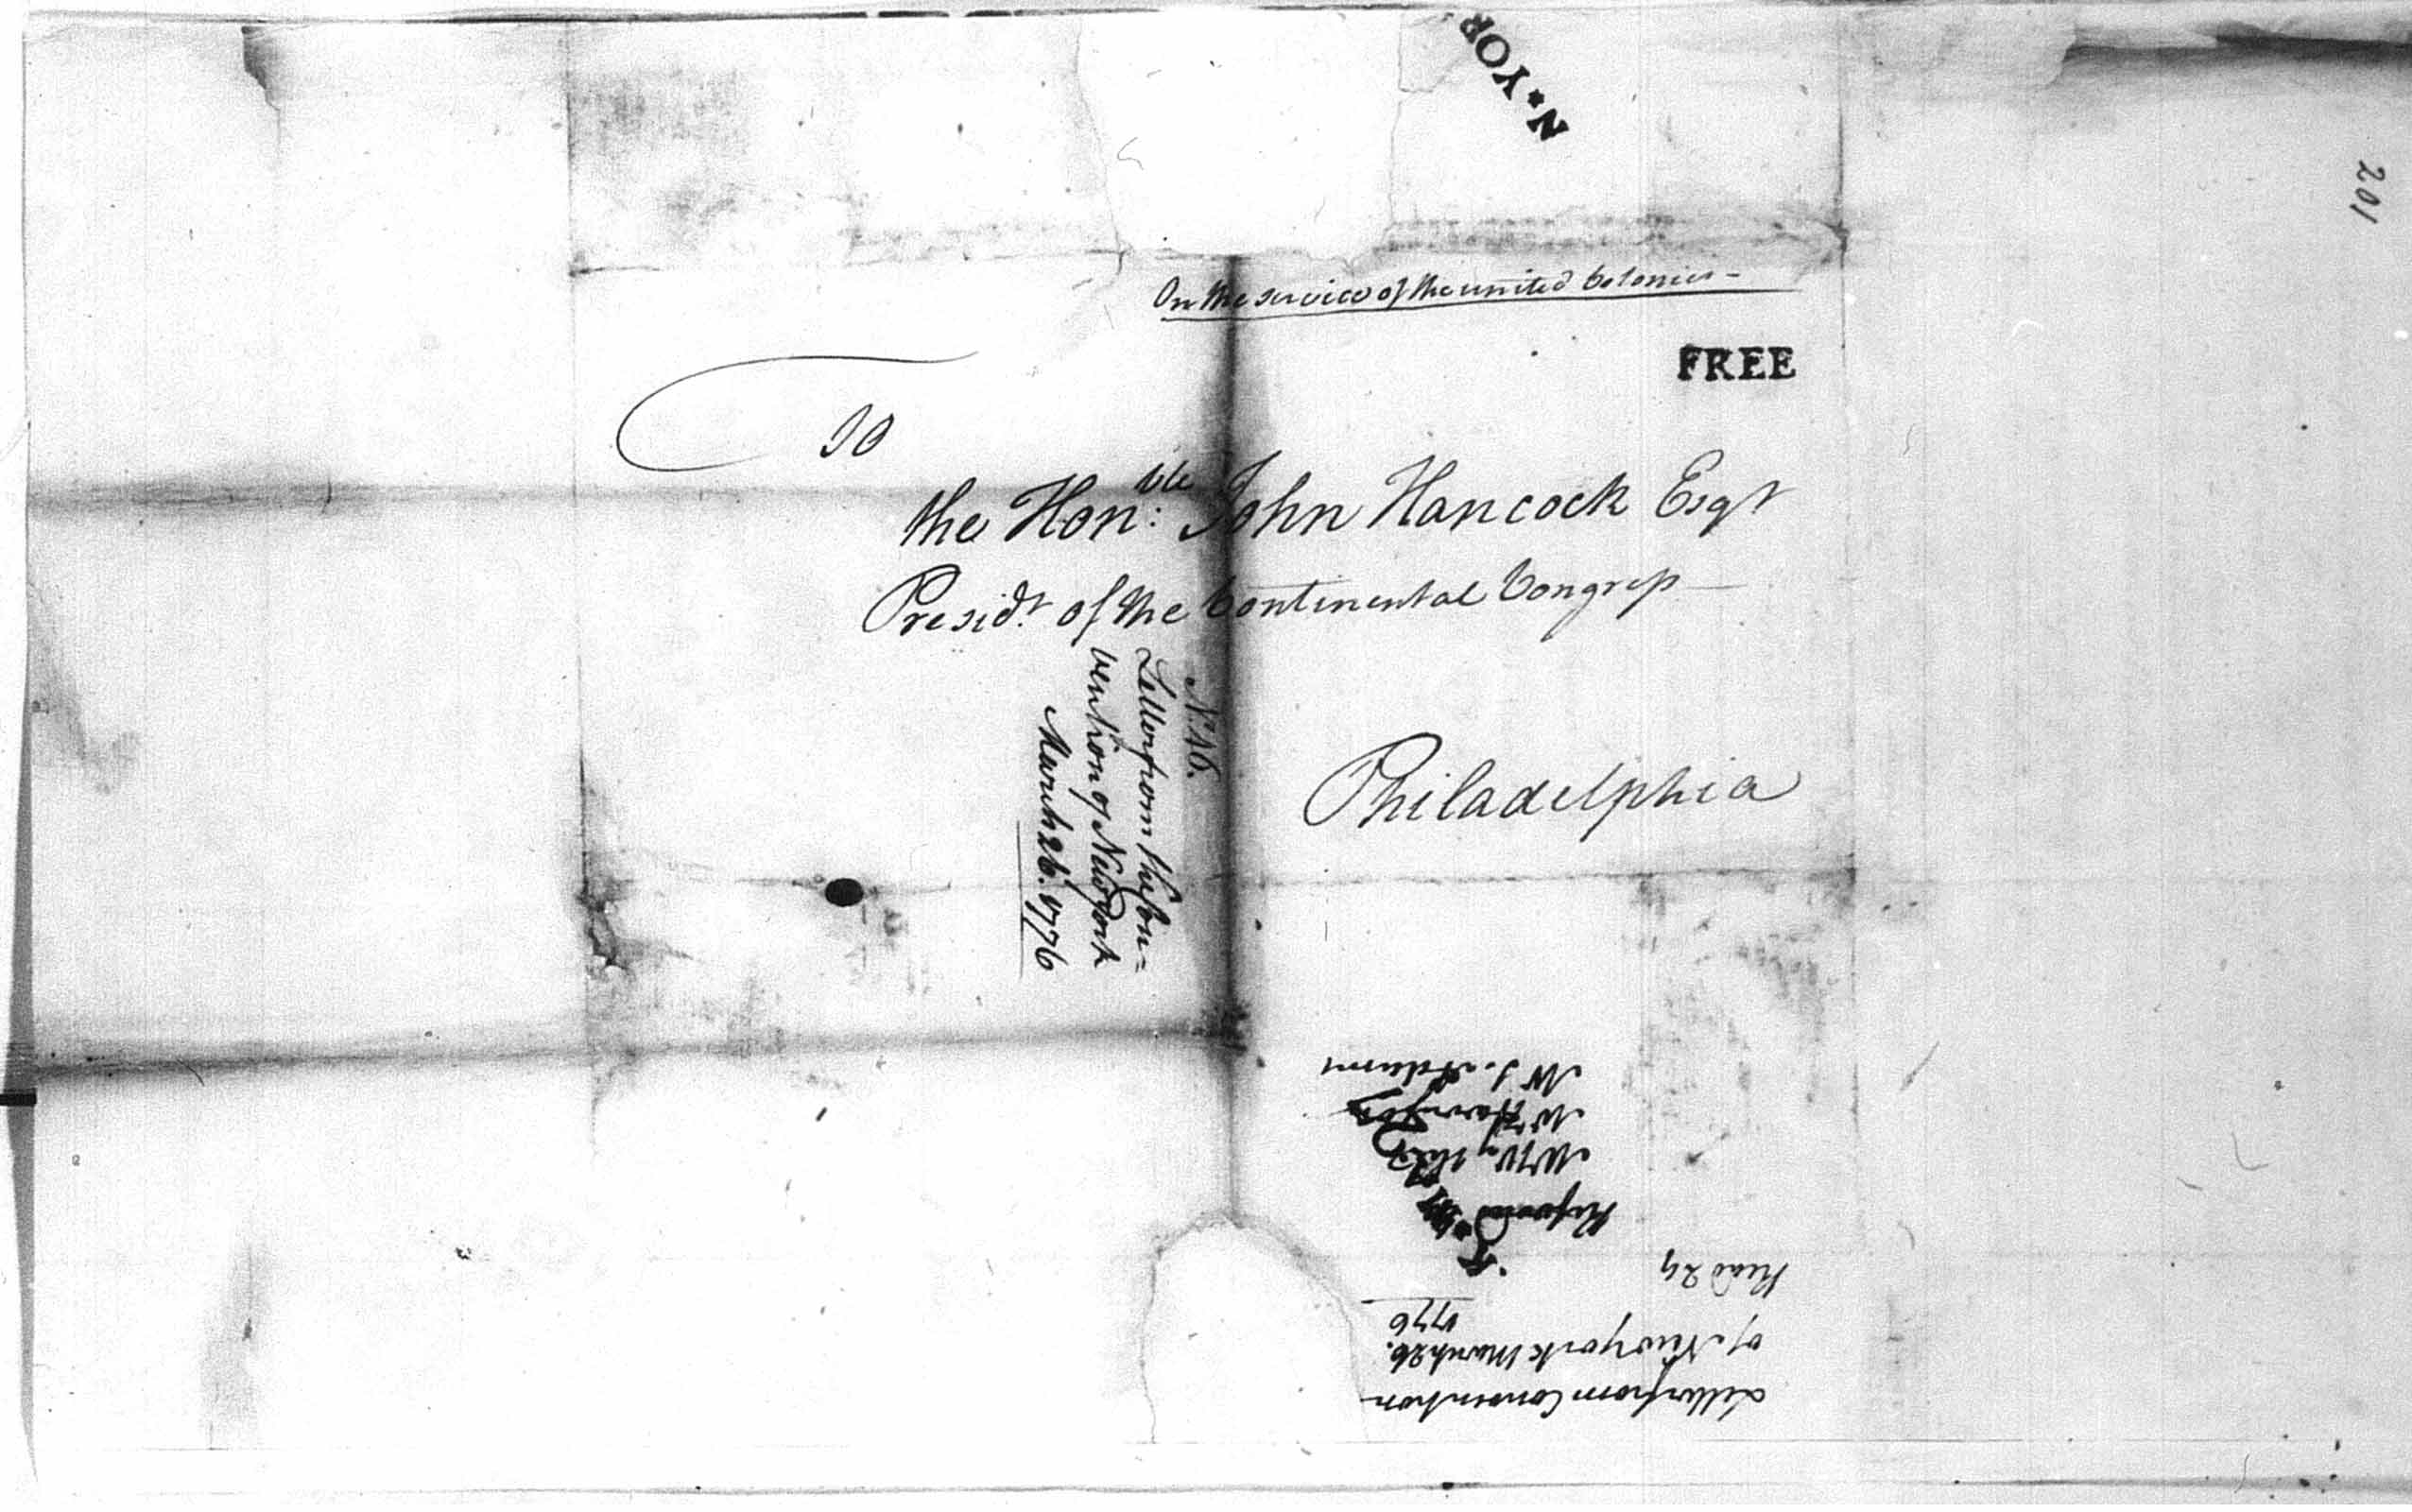 N*YOR
201
On the service of the united Colonies -
FREE
To
the Hon:ble John Hancock Esqr
Presidt. of the Continental Congress
Philadelphia
No. 16.
Letter from the Con=
vention of New York
March 26. 1776
Letter from Convention
of New york March 26.
1776
Read 29
Referred
Mr Wythe
Mr Harrison
Mr J. Adams